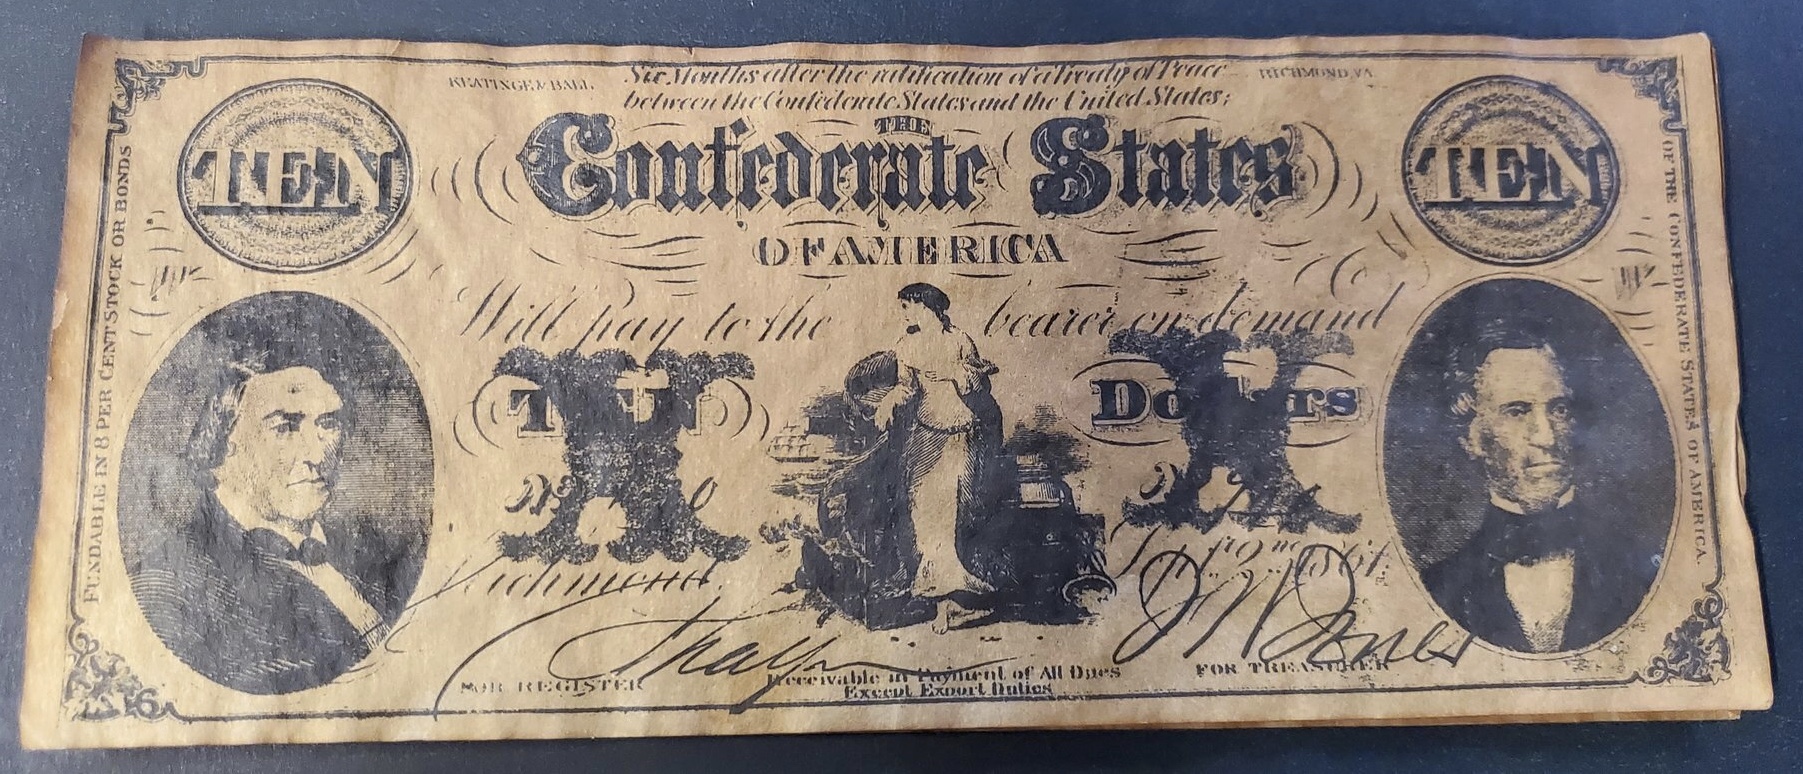 KEATINGE & BALL,
Six Months after the ratification of a Treaty of Peace
RICHMOND, VA
between the Confederate States and the United States;
TEN
THE
Confederate States
TEN
OF AMERICA
Will pay to the bearer on demand
TEN
X
Dollars
X
Richmond.
Sept 2nd 1861.
FOR REGISTER
Receivable in Payment of All Dues
Except Export Duties
FOR TREASURER
FUNDABLE IN 8 PER CENT STOCK OR BONDS
OF THE CONFEDERATE STATES OF AMERICA.